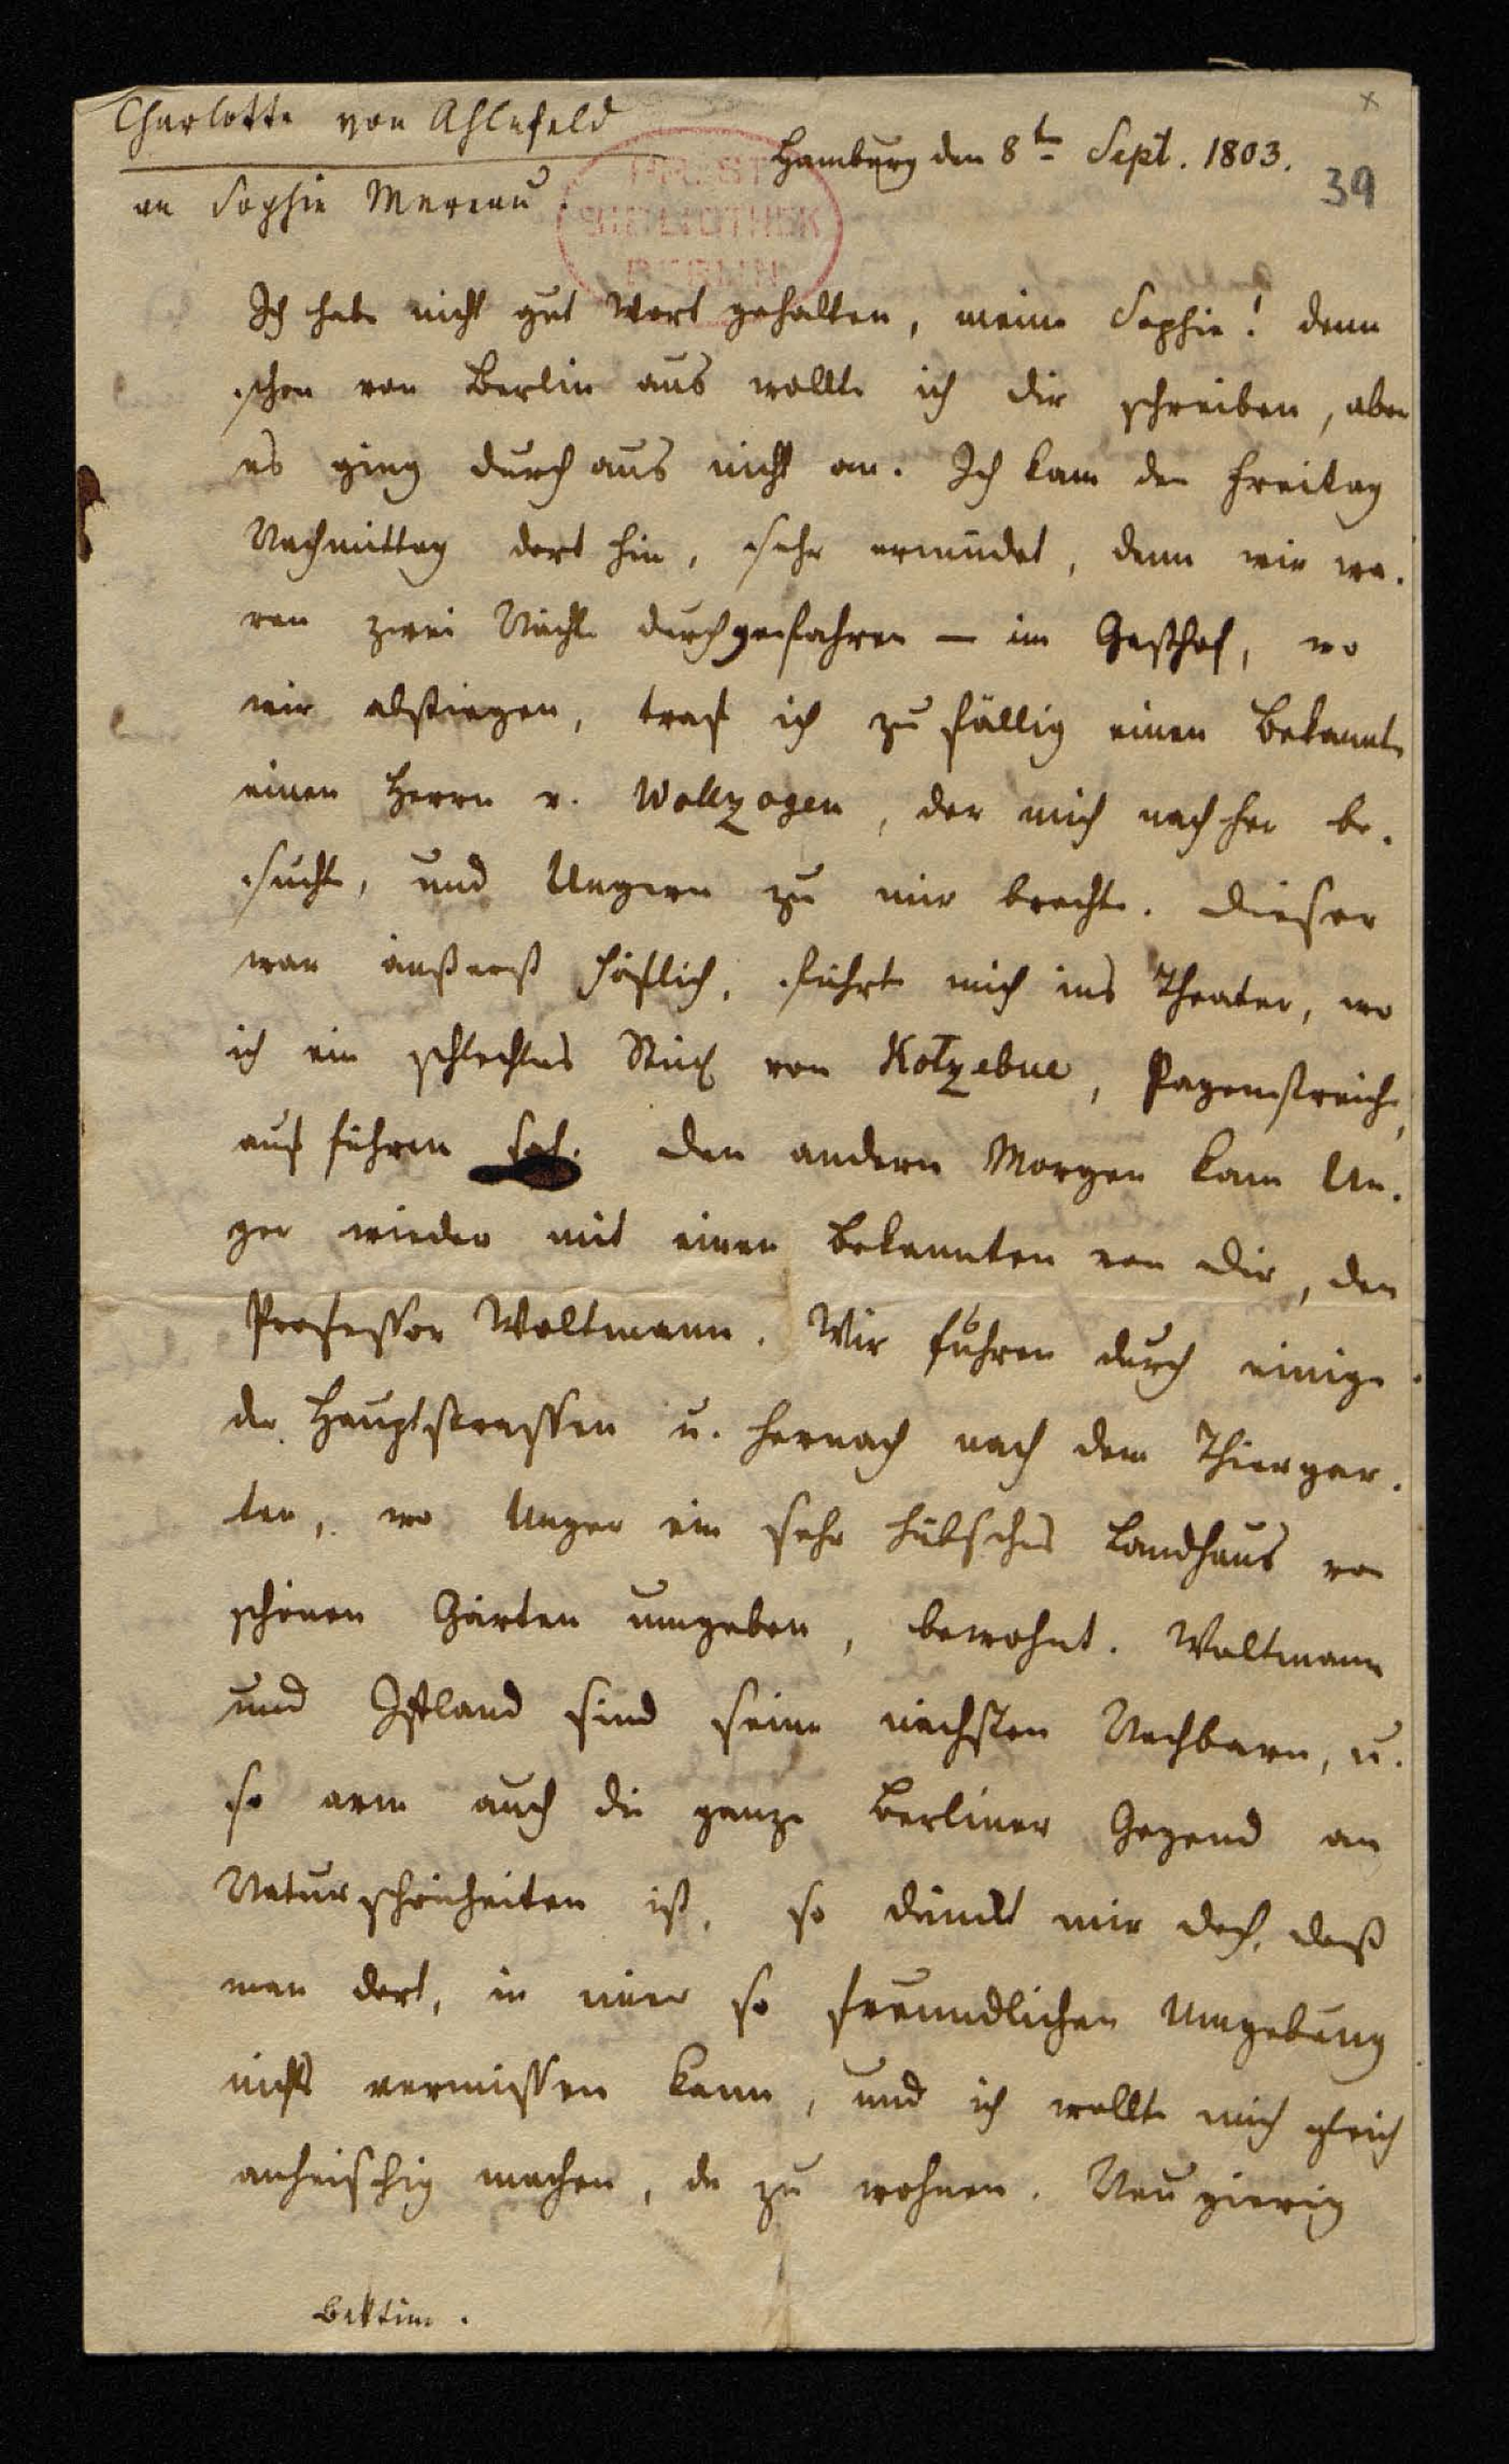 Charlotte von Ahlefeld
Hamburg den 8t Sept. 1803.
an Sophie Mereau.
39
BIBLIOTHEK
BERLIN
Ich habe nicht gut Wort gehalten, meine Sophie! denn
schon von Berlin aus wollte ich dir schreiben, aber
es ging durch aus nicht an. Ich kam den Freitag
Nachmittag dort hin, sehr ermüdet, denn wir wa-
ren zwei Nächte durchgefahren — im Gasthof, wo
wir abstiegen, traf ich zu fällig einen Bekannte
einen Herrn v. Wollzogen, der mich nach her be-
suchte, und Ungern zu mir brachte. Dieser
war äußerst höflich, führte mich ins Theater, wo
ich ein schlechtes Stück von Kotzebue, Pagenstreiche,
auf führen sah. Den andern Morgen kam Un-
ger wieder mit einen Bekannten von Dir, den
Professor Woltmann. Wir fuhren durch einige
der Hauptstrassen u. hernach nach dem Thiergar-
ten, wo Unger ein sehr hübsches Landhaus von
schönen Gärten umgeben, bewohnt. Woltmann
und Iffland sind seine nächsten Nachbarn, u.
so arm auch die ganze Berliner Gegend an
Naturschönheiten ist, so dünkt mir doch, daß
man dort, in einer so freundlichen Umgebung
nichts vermissen kann, und ich wollte mich gleich
anheischig machen, da zu wohnen. Neu gierig